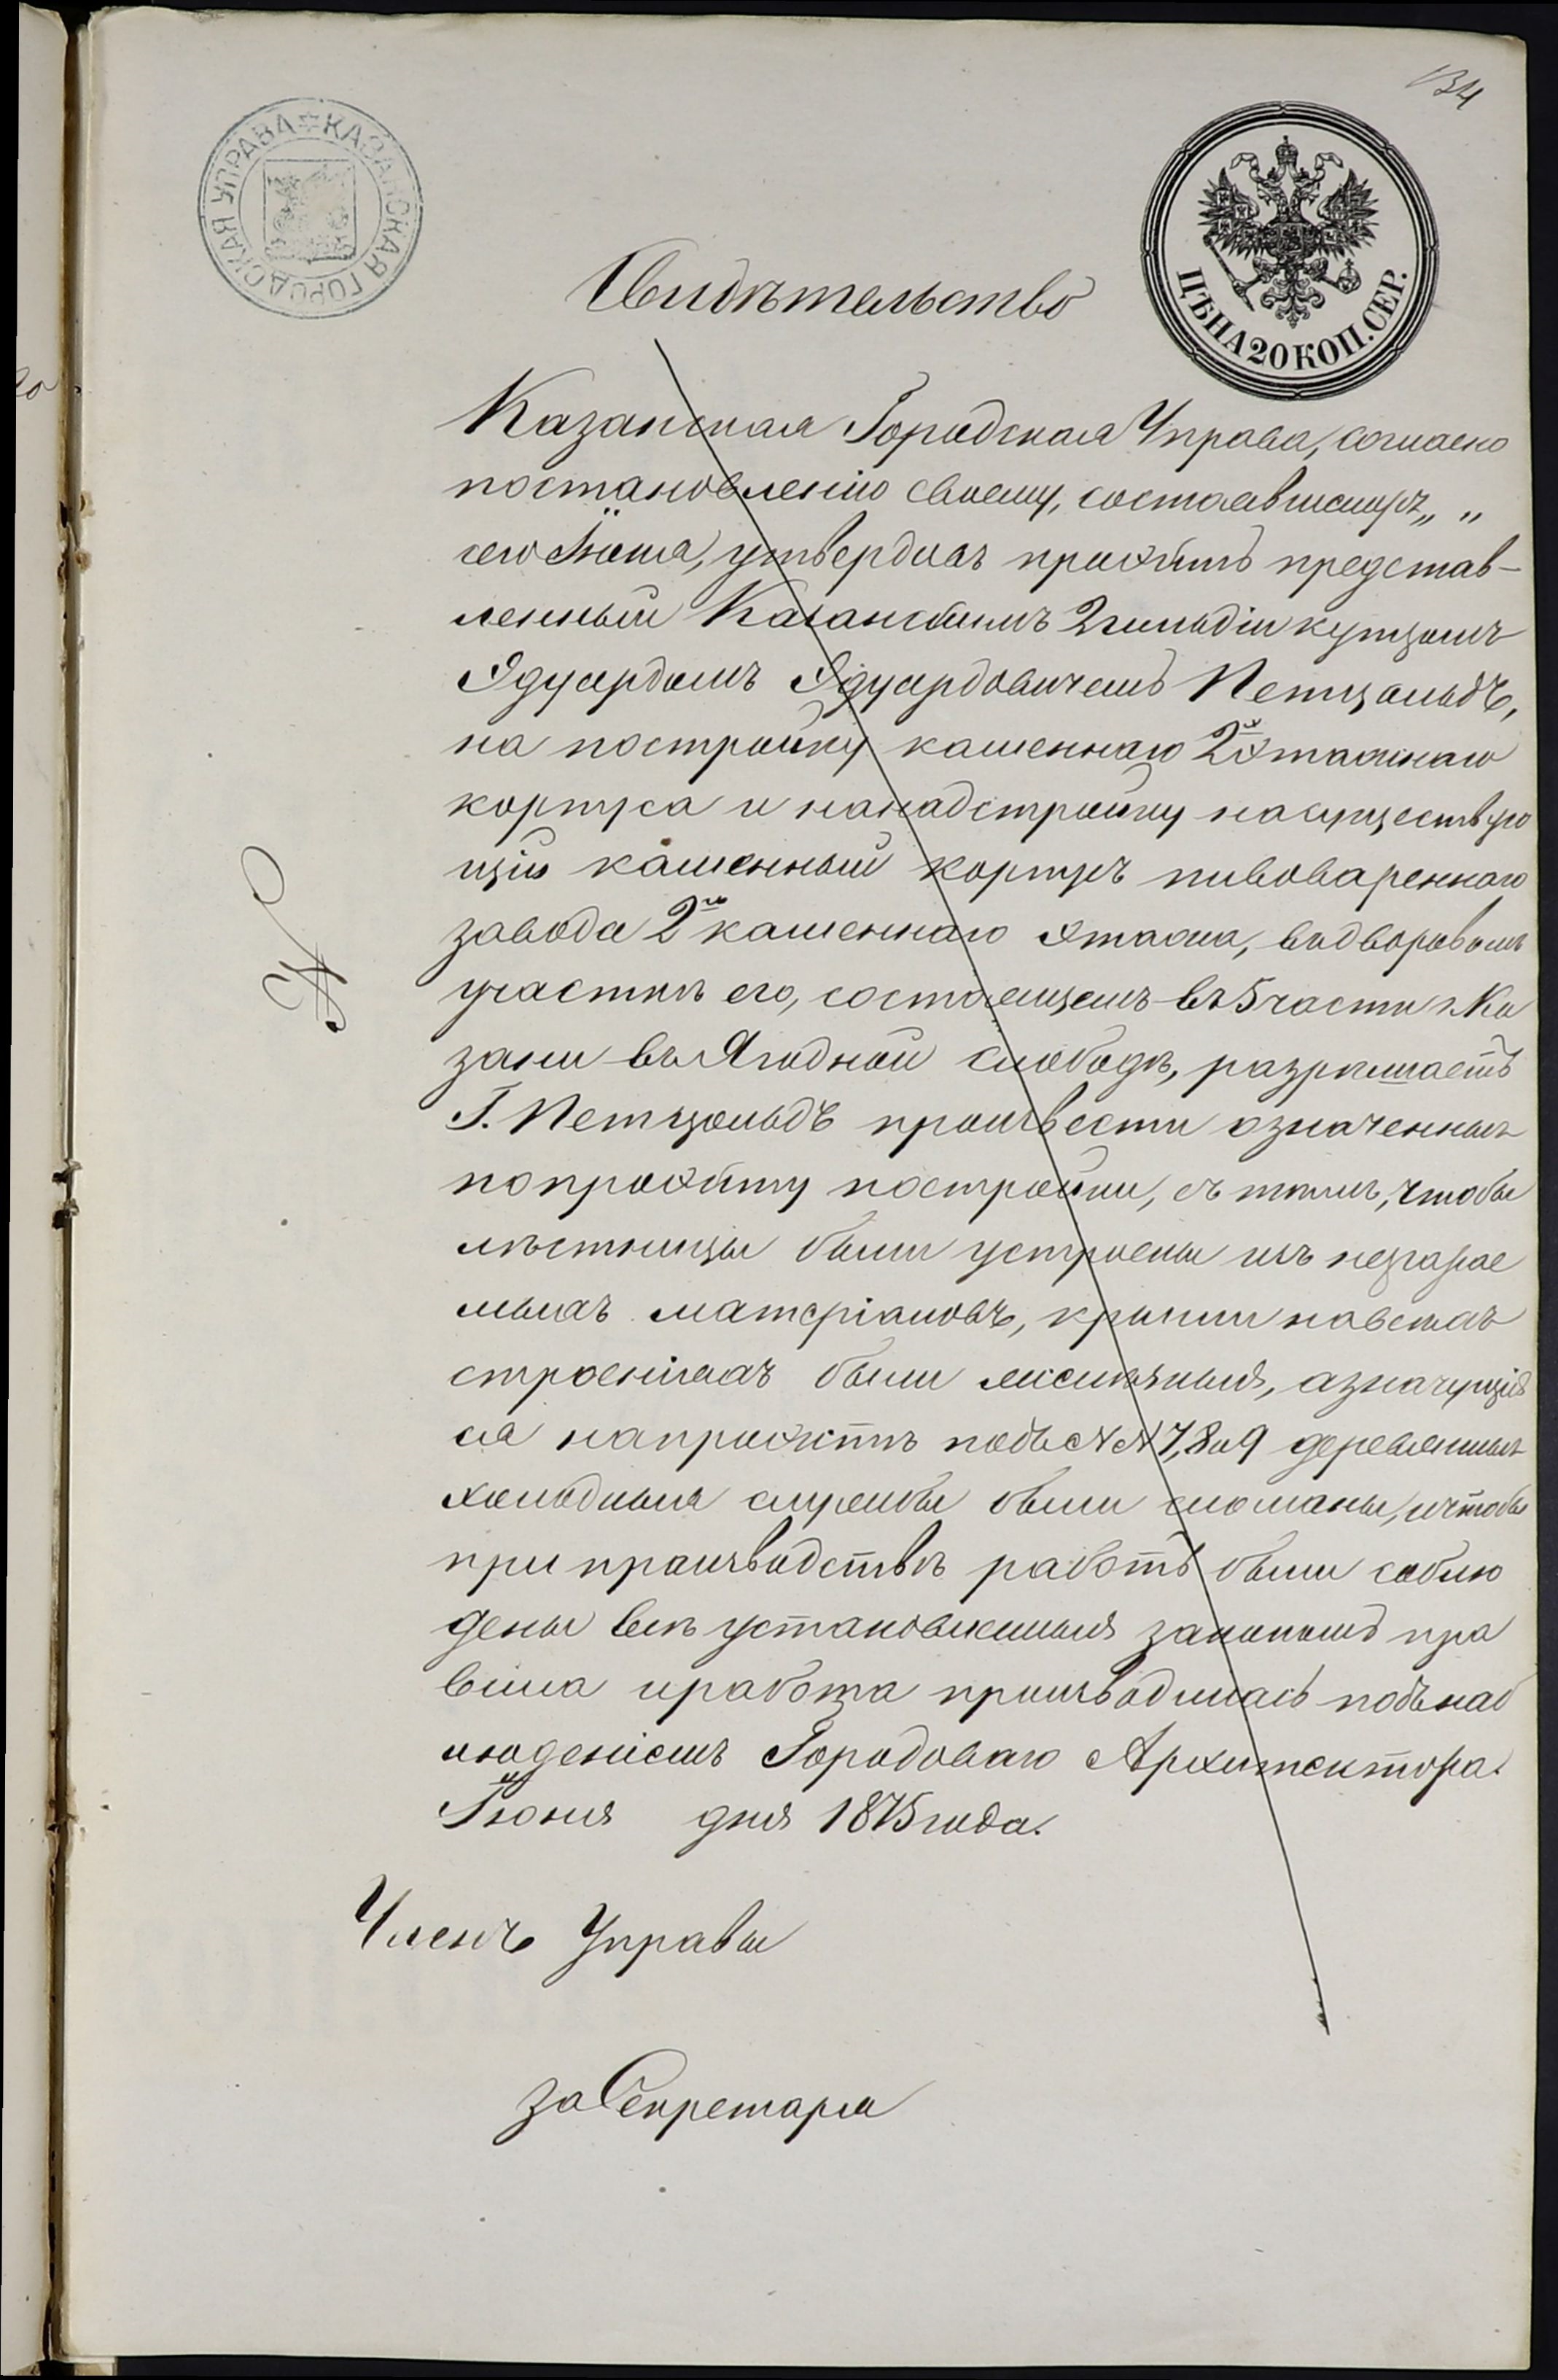 134
КАЗАНСКАЯ ГОРОДСКАЯ УПРАВА
ЦѢНА 20 КОП. СЕР.
Свидѣтельство
Казанская Городская Управа, согласно
постановленію своему, состоявшемуся „ „
сего Іюня, утвердивъ проэктъ представ-
ленный Казанскимъ 2 гильдіи купцомъ
Эдуардомъ Эдуардовичемъ Петцольдъ,
на постройку каменнаго 2хъ этажнаго
корпуса и на надстройку на существую
щій каменный корпусъ пивовареннаго
завода 2го каменнаго этажа, въ дворовомъ
участкѣ его, состоящемъ въ 5 части г. Ка
зани въ Ягодной слободѣ, разрѣшаетъ
Г. Петцольдъ произвести означенныя
по проэкту постройки, съ тѣмъ, чтобы
лѣстницы были устроены изъ несгарае
мыхъ матеріаловъ, крыши на всѣхъ
строеніяхъ были желѣзныя, а значущія
ся на проэктѣ подъ № № 7, 8 и 9 деревянныя
холодныя службы были сломаны, и чтобы
при производствѣ работъ были соблю
дены всѣ установленныя закономъ пра
вила и работа производилась подъ наб
люденіемъ Городоваго Архитектора.
Іюня дня 1875 года.
Членъ Управы
За Секретаря